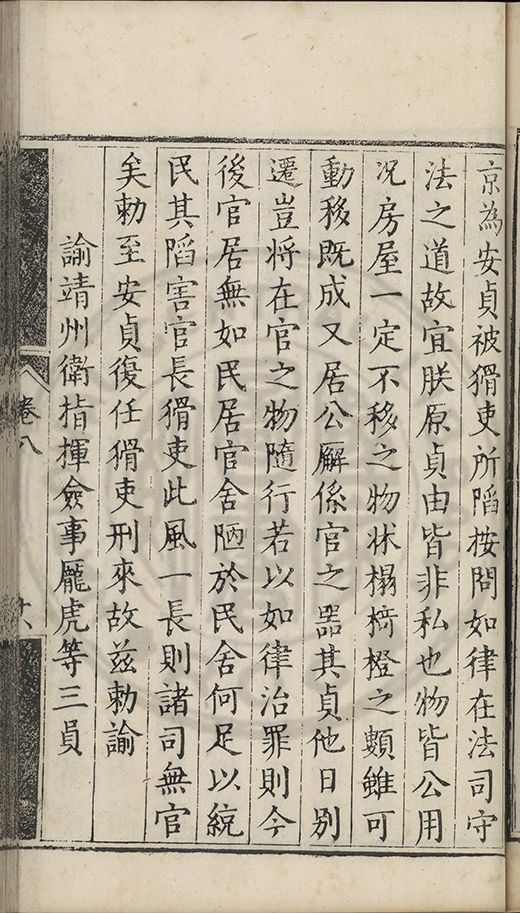 京為安貞被猾吏所陷按問如律在法司守
法之道故宜朕原貞由皆非私也物皆公用
况房屋一定不移之物牀榻椅橙之類雖可
動移既成又居公廨係官之器其貞他日别
遷豈将在官之物隨行若以如律治罪則今
後官居無如民居官舍陋於民舍何足以統
民其陷害官長猾吏此風一長則諸司無官
矣勅至安貞復任猾吏刑來故茲勅諭
諭靖州衛指揮僉事龎虎等三員
卷八